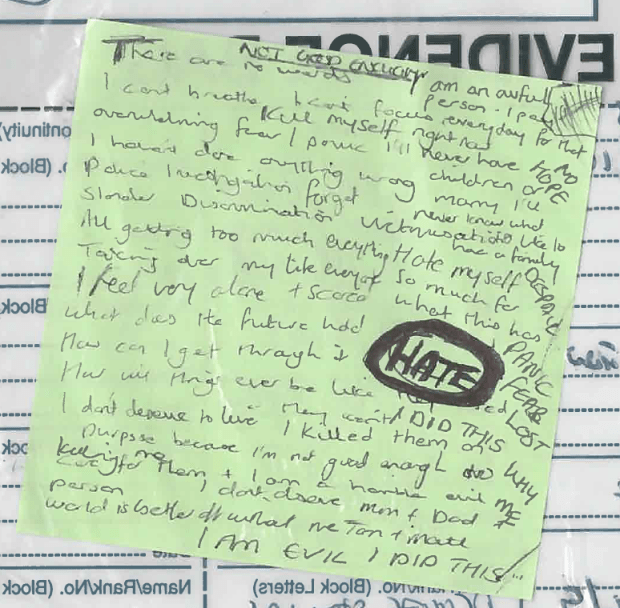 NOT GOOD ENOUGH
There are no words
I am an awful person. I pay everyday for that
I can't breathe I can't focus
Kill myself right now
overwhelming fear / panic I'll never have children or marry
NO HOPE
I haven't done anything wrong
I'll never know what
Police investigation forget
like to have a family
Slander Discrimination Victimisation
All getting too much everything Hate myself
DESPAIR
Taking over my life everyday
so much for what this has
I feel very alone + scared
PANIC
What does the future hold
How can I get through it
HATE
FEAR
How will things ever be like
LOST
I don't deserve to live
I DID THIS
I killed them on
purpose because I'm not good enough to
WHY ME
care for them + I am a horrible evil
killing me
person I don't deserve Mum + Dad
world is better off without me
I AM EVIL I DID THIS
EVIDENCE
ontinuity)
o. (Block
Block
Block
Name/Rank/No. (Block
/No. (Block Letters)